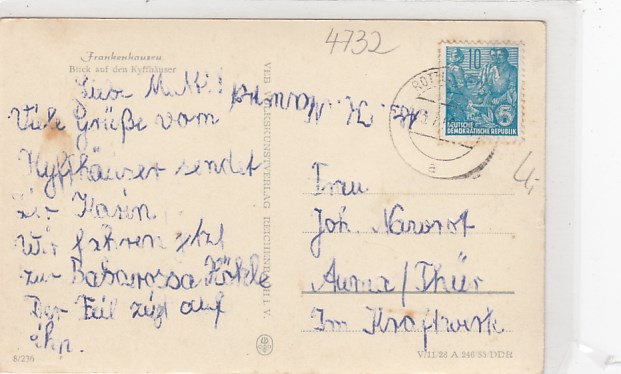 4732
Frankenhausen
Blick auf den Kyffhäuser
Liebe
Viele Grüße vom
Kyffhäuser sendet
Karin
Wir fahren jtzt
zur Babarossa Höhle
Der Feil zeigt auf
ihn.
8/236
VEB VOLKSKUNSTVERLAG REICHENBACH I. V.
10
5
DEUTSCHE
DEMOKRATISCHE REPUBLIK
a
Frau
Joh. Nawrot
Auma/Thür
Im Kraftwerk
V/11/28 A 246/55 DDR